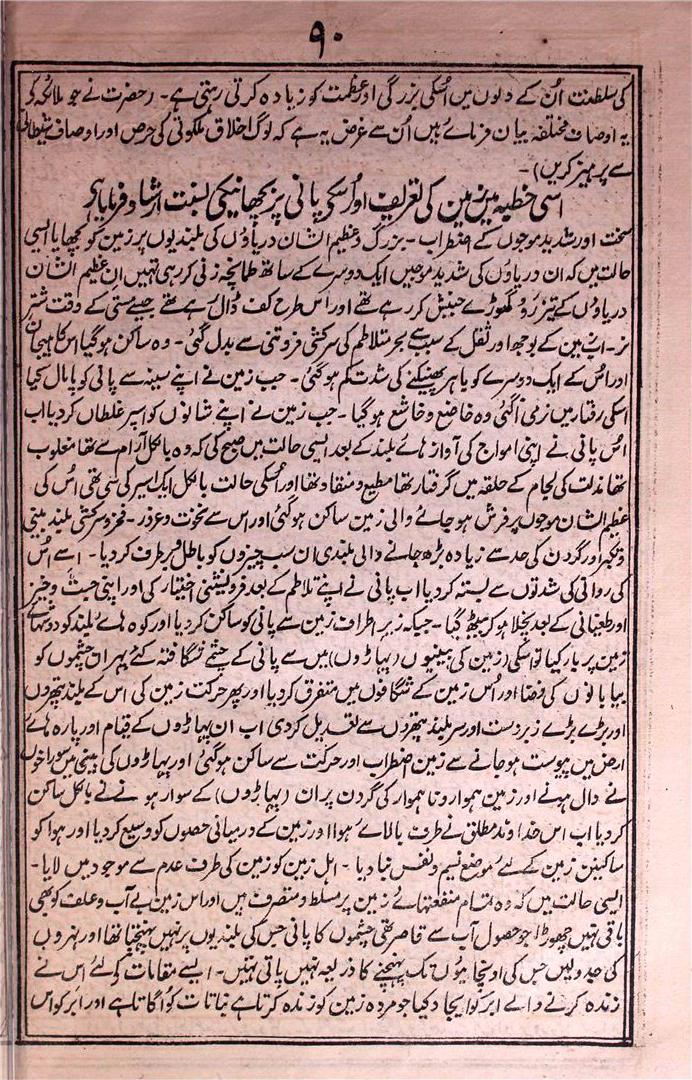 ۹۰
کی سلطنت اُن کے دلوں میں اُسکی بزرگی اور عظمت کو زیادہ کرتی رہتی ہے۔ (حضرت نے جو ملائکہ کی
یہ اوصاف مختلفہ بیان فرمائے ہیں اُن سے غرض یہ ہے کہ لوگ اخلاق ملکوتی کی حرص اور اوصاف شیطانی
سے پرہیز کریں)۔
اسی خطبہ میں زمین کی تعریف اور اُسکو پانی پر بچھانیکی نسبت ارشاد فرمایا ہے
سخت اور شدید موجوں کے اضطراب۔ بزرگ و عظیم الشان دریاؤں کی بلندیوں پر زمین کو بچھایا ایسی
حالت میں کہ ان دریاؤں کی شدید موجیں ایک دوسرے کے ساتھ طمانچہ زنی کر رہی تھیں ان عظیم الشان
دریاؤں کے تیز رو گھوڑے جنبش کر رہے تھے اور اس طرح کف ڈال رہے تھے جیسے مستی کے وقت شتر
نر۔ اب زمین کے بوجھ اور ثقل کے سبب سے بحر متلاطم کی سرکشی فروتنی سے بدل گئی۔ وہ ساکن ہو گیا اس کا ہیجان
اور اُس کے ایک دوسرے کو باہر پھینکنے کی شدت کم ہو گئی۔ جب زمین نے اپنے سینہ سے پانی کو پامال کیا
اسکی رفتار میں نرمی آ گئی وہ خاضع و خاشع ہو گیا۔ جب زمین نے اپنے شانوں کو اسپر غلطاں کر دیا اب
اُس پانی نے اپنی امواج کی آواز ہائے بلند کے بعد ایسی حالت میں صبح کی کہ وہ بالکل آرام سے تھا مغلوب
تھا مذلت کی لجام کے حلقہ میں گرفتار تھا مطیع و منقاد تھا اور اُسکی حالت بالکل ایک اسیر کی سی تھی اُس کی
عظیم الشان موجوں پر فرش ہو جانے والی زمین ساکن ہو گئی اور اس سے نخوت و عذر۔ فخر و سرکشی بلند بینی
و تکبر اور گردن کی حد سے زیادہ بڑھ جانے والی بلندی ان سب چیزوں کو باطل و برطرف کر دیا۔ اسے اُس
کی روانی کی شدتوں سے بستہ کر دیا اب پانی نے اپنے تلاطم کے بعد فرونشینی اختیار کی اور اپنی جست و خیز
اور طغیانی کے بعد نچلا ہو کر بیٹھ گیا۔ جبکہ زیر اطراف زمین سے پانی کو ساکن کر دیا اور کوہ ہائے بلند کو دوشہائے
زمین پر بار کیا تو اُسکی (زمین کی بینیوں (پہاڑوں) میں سے پانی کے چشمے شگافتہ کئے پھر ان چشموں کو
بیابانوں کی فضا اور اُس زمین کے شگافوں میں متفرق کر دیا اور پھر حرکت زمین کی اس کے بلند پتھروں
اور بڑے بڑے زبردست اور سر بلند پتھروں سے تعدیل کر دی اب ان پہاڑوں کے قیام اور پارہ ہائے
ارض میں پیوست ہو جانے سے زمین اضطراب اور حرکت سے ساکن ہو گئی اور پہاڑوں کی بینی میں سوراخوں
نے دال ہونے اور زمین ہموار و نا ہموار کی گردن پر ان (پہاڑوں) کے سوار ہو نے نے بالکل ساکن
کر دیا اب اس خداوند مطلق نے طرف بالائے ہوا اور زمین کے درمیانی حصوں کو وسیع کر دیا اور ہوا کو
ساکنین زمین کے لئے موضع نسیم و نفس بنا دیا۔ اہل زمین کو زمین کی طرف عدم سے موجود میں لایا۔
ایسی حالت میں کہ وہ تمام منفعتہائے زمین پر مسلط و متصرف ہیں اور اس زمین بے آب و علف کو بھی
باقی نہیں چھوڑا جو حصول آب سے قاصر تھی چشموں کا پانی جس کی بلندیوں پر نہیں پہنچتا تھا اور نہروں
کی جدولیں جس کی اونچاہیوں تک پہنچنے کا ذریعہ نہیں پاتی تھیں۔ ایسے مقامات کے لئے اس نے
زندہ کرنے والے ابر کو ایجاد کیا جو مردہ زمین کو زندہ کرتا ہے نباتات کو اُگاتا ہے اور ابر کو اس